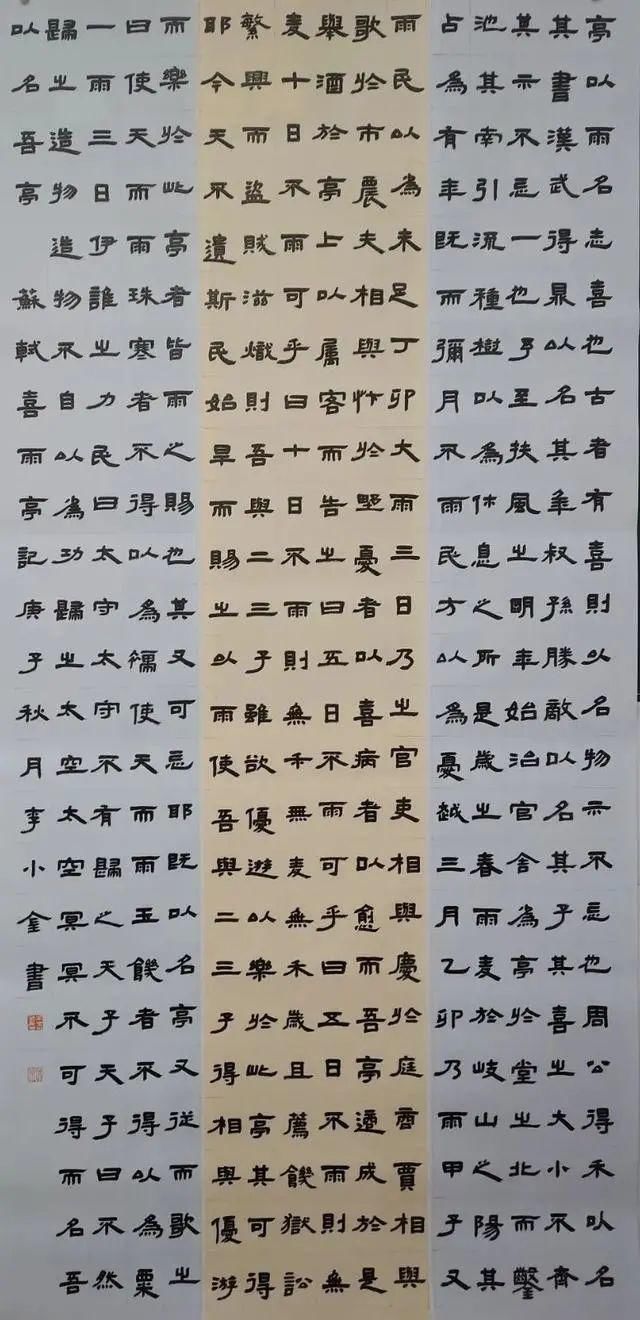 亭以雨名志喜也古者有喜則以名物示不忘也周公得禾以名
其書漢武得鼎以名其年叔孫勝敵以名其子其喜之大小不齊
其示不忘一也予至扶風之明年始治官舍為亭於堂之北而鑿
池其南引流種樹以為休息之所是歲之春雨麥於岐山之陽其
占為有年既而彌月不雨民方以為憂越三月乙卯乃雨甲子又
雨民以為未足丁卯大雨三日乃止官吏相與慶於庭商賈相與
歌於市農夫相與忭於野憂者以喜病者以愈而吾亭適成於是
舉酒於亭上以屬客而告之曰五日不雨可乎曰五日不雨則無
麥十日不雨可乎曰十日不雨則無禾無麥無禾歲且薦饑獄訟
繁興而盜賊滋熾則吾與二三子雖欲優遊以樂於此亭其可得
耶今天不遺斯民始旱而賜之以雨使吾與二三子得相與優游
而樂於此亭者皆雨之賜也其又可忘耶既以名亭又從而歌之
曰使天而雨珠寒者不得以為襦使天而雨玉饑者不得以為粟
一雨三日伊誰之力民曰太守太守不有歸之天子天子曰不然
歸之造物造物不自以為功歸之太空太空冥冥不可得而名吾
以名吾亭 蘇軾喜雨亭記庚子秋月李小金書